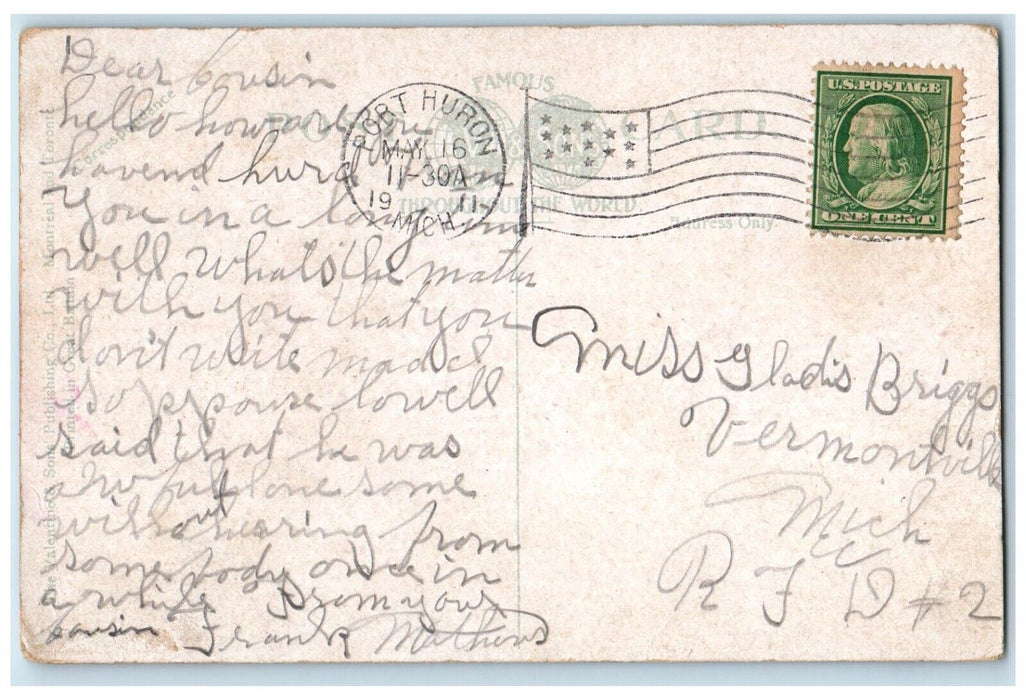 Dear Cousin
hello how are you
havend hurd from
you in a long time
well whats the matter
with you that you
dont write mad
I so porpouse lowell
said that he was
awful lone some
with out hearing from
some body once in
a while From your
cousin Frank Mathews
Correspondence
The Valentine & Sons' Publishing Co., Ltd. Montreal and Toronto
Printed in Great Britain
FAMOUS
THROUGHOUT THE WORLD.
CARD
Address Only
PORT HURON
MAY 16
11-30A
1911
MICH
U.S. POSTAGE
ONE CENT 1
Miss Gladis Briggs
Vermontville
Mich
R F D #2